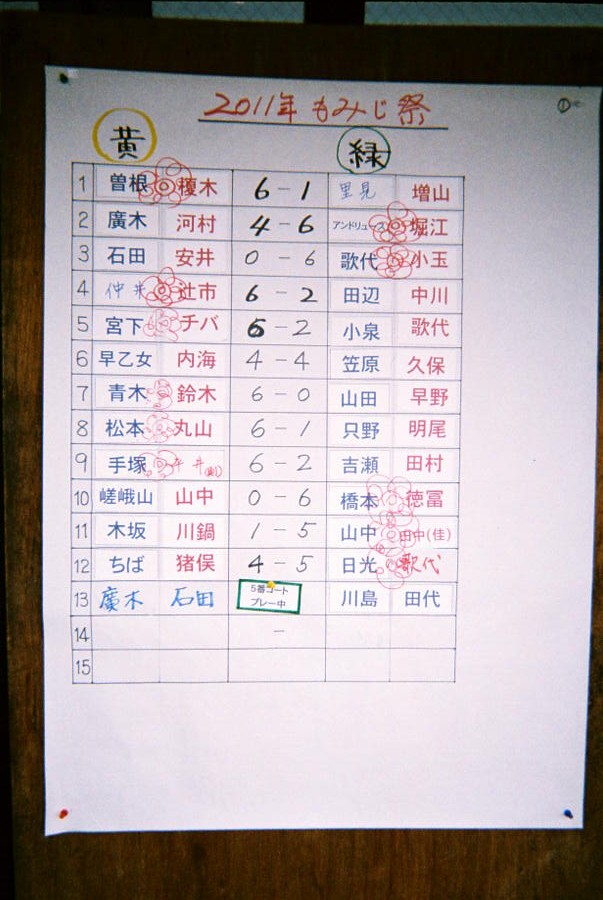 2011年 もみじ祭
①
黄 緑
1 曽根 榎木 6-1 里見 増山
2 廣木 河村 4-6 アンドリュース 堀江
3 石田 安井 0-6 歌代 小玉
4 仲井 辻市 6-2 田辺 中川
5 宮下 チバ 6-2 小泉 歌代
6 早乙女 内海 4-4 笠原 久保
7 青木 鈴木 6-0 山田 早野
8 松本 丸山 6-1 只野 明尾
9 手塚 平井 6-2 吉瀬 田村
10 嵯峨山 山中 0-6 橋本 徳冨
11 木坂 川鍋 1-5 山中 田中(佳)
12 ちば 猪俣 4-5 日光 歌代
13 廣木 石田 5番コート プレー中 川島 田代
14 -
15